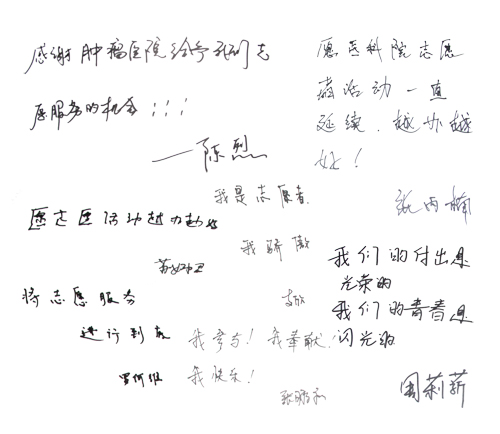 感谢肿瘤医院给予我们志
愿服务的机会!!!
——陈烈
愿医科院志愿
活动一直
延续,越办越
好!
我是志愿者.
我骄傲
愿志医活动越办越好
我们的付出是
光荣的
我们的青春是
闪光的
周莉莉
将志愿服务
进行到底
我参与!我奉献!
我快乐!